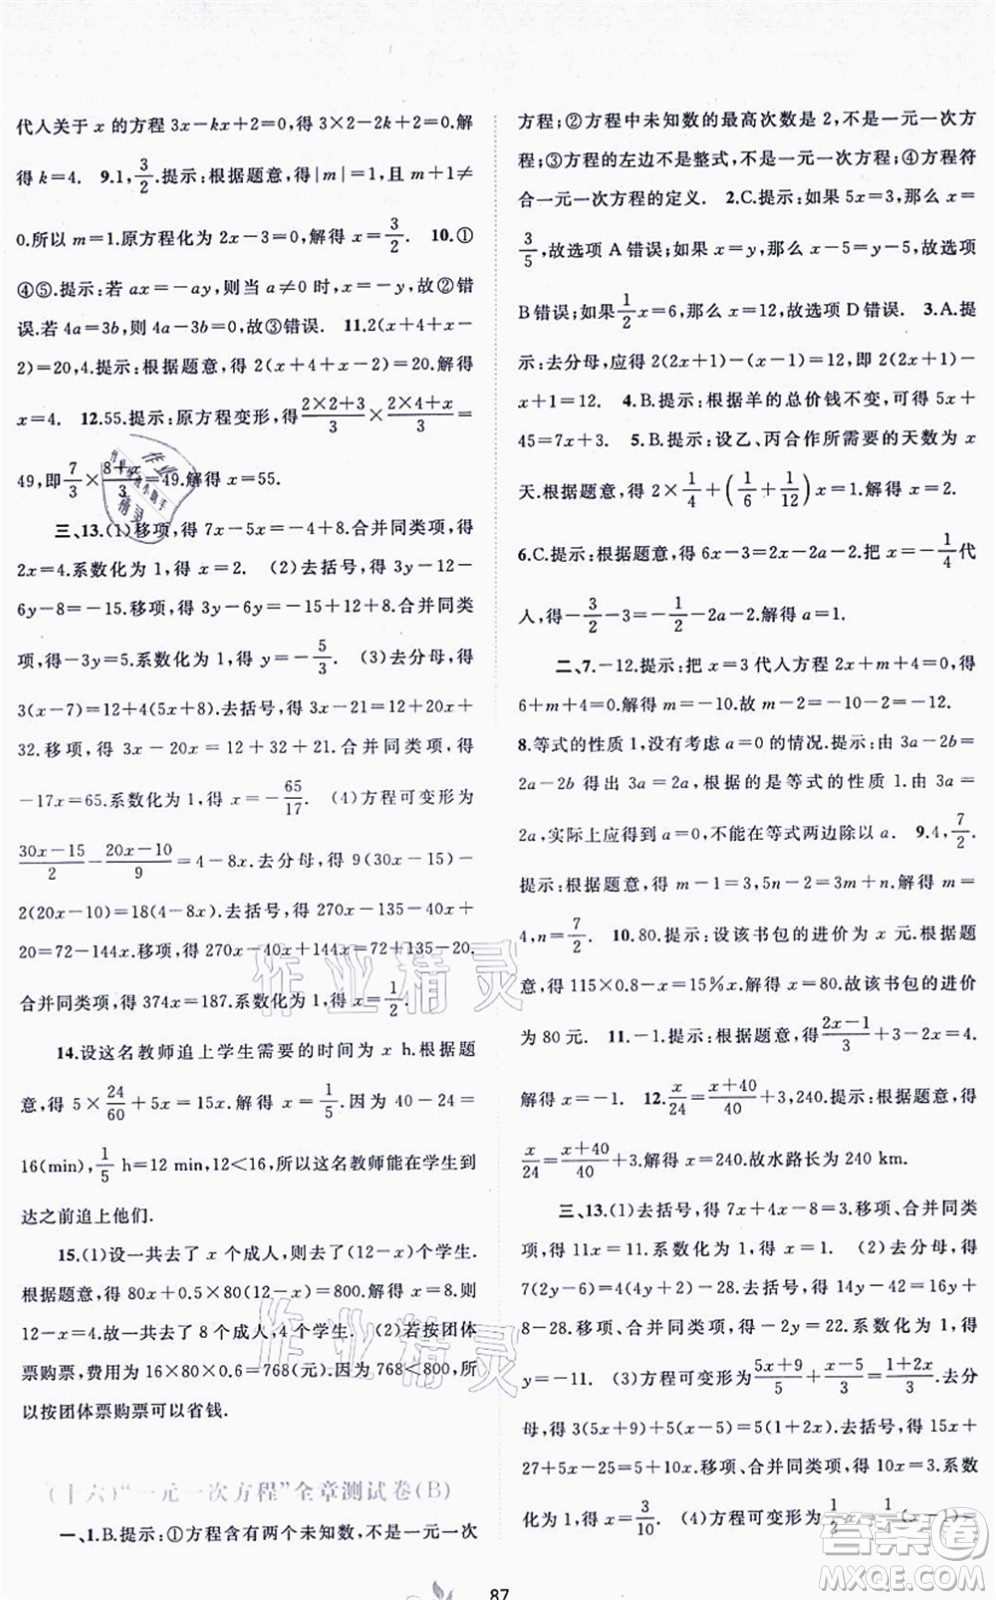 代人关于 x 的方程 3x-kx+2=0,得 3×2-2k+2=0.解
得 k=4. 9.1,3/2.提示:根据题意,得|m|=1,且 m+1≠
0.所以 m=1.原方程化为 2x-3=0,解得 x=3/2. 10.①
④⑤.提示:若 ax=-ay,则当 a≠0 时,x=-y,故②错
误.若 4a=3b,则 4a-3b=0,故③错误. 11.2(x+4+x-
2)=20,4.提示:根据题意,得 2(x+4+x-2)=20.解得
x=4. 12.55.提示:原方程变形,得(2×2+3)/3×(2×4+x)/3=
49,即7/3×(8+x)/3=49.解得 x=55.
三、13.(1)移项,得 7x-5x=-4+8.合并同类项,得
2x=4.系数化为 1,得 x=2. (2)去括号,得 3y-12-
6y-8=-15.移项,得 3y-6y=-15+12+8.合并同类
项,得-3y=5.系数化为 1,得 y=-5/3. (3)去分母,得
3(x-7)=12+4(5x+8).去括号,得 3x-21=12+20x+
32.移项,得 3x-20x=12+32+21.合并同类项,得
-17x=65.系数化为 1,得 x=-65/17. (4)方程可变形为
(30x-15)/2-(20x-10)/9=4-8x.去分母,得 9(30x-15)-
2(20x-10)=18(4-8x).去括号,得 270x-135-40x+
20=72-144x.移项,得 270x-40x+144x=72+135-20.
合并同类项,得 374x=187.系数化为 1,得 x=1/2.
14.设这名教师追上学生需要的时间为 x h.根据题
意,得 5×24/60+5x=15x.解得 x=1/5.因为 40-24=
16(min),1/5 h=12 min,12<16,所以这名教师能在学生到
达之前追上他们.
15.(1)设一共去了 x 个成人,则去了(12-x)个学生.
根据题意,得 80x+0.5×80(12-x)=800.解得 x=8.则
12-x=4.故一共去了 8 个成人,4 个学生. (2)若按团体
票购票,费用为 16×80×0.6=768(元).因为 768<800,所
以按团体票购票可以省钱.
(十六)“一元一次方程”全章测试卷(B)
一、1.B.提示:①方程含有两个未知数,不是一元一次
方程;②方程中未知数的最高次数是 2,不是一元一次方
程;③方程的左边不是整式,不是一元一次方程;④方程符
合一元一次方程的定义. 2.C.提示:如果 5x=3,那么 x=
3/5,故选项 A 错误;如果 x=y,那么 x-5=y-5,故选项
B错误;如果1/2x=6,那么 x=12,故选项 D错误. 3.A.提
示:去分母,应得 2(2x+1)-(x-1)=6.去括号,得 4x+2-
x+1=6. 4.B.提示:根据羊的总价钱不变,可得 5x+
45=7x+3. 5.B.提示:设乙、丙合作所需要的天数为 x
天.根据题意,得 2×1/4+(1/6+1/12)x=1.解得 x=2.
6.C.提示:根据题意,得 6x-3=2x-2a-2.把 x=-1/4代
人,得-3/2-3=-1/2-2a-2.解得 a=1.
二、7.-12.提示:把 x=3 代人方程 2x+m+4=0,得
6+m+4=0.解得 m=-10.故 m-2=-10-2=-12.
8.等式的性质 1,没有考虑 a=0 的情况.提示:由 3a-2b=
2a-2b 得出 3a=2a,根据的是等式的性质 1.由 3a=
2a,实际上应得到 a=0,不能在等式两边除以 a. 9.4,7/2.
提示:根据题意,得 m-1=3,5n-2=3m+n.解得 m=
4,n=7/2. 10.80.提示:设该书包的进价为 x 元.根据题
意,得 115×0.8-x=15%x.解得 x=80.故该书包的进价
为 80 元. 11.-1.提示:根据题意,得(2x-1)/3+3-2x=4.
解得 x=-1. 12.x/24=(x+40)/40+3,240.提示:根据题意,得
x/24=(x+40)/40+3.解得 x=240.故水路长为 240 km.
三、13.(1)去括号,得 7x+4x-8=3.移项、合并同类
项,得 11x=11.系数化为 1,得 x=1. (2)去分母,得
7(2y-6)=4(4y+2)-28.去括号,得 14y-42=16y+
8-28.移项、合并同类项,得-2y=22.系数化为 1,得
y=-11. (3)方程可变形为(5x+9)/5+(x-5)/3=(1+2x)/3.去分
母,得 3(5x+9)+5(x-5)=5(1+2x).去括号,得 15x+
27+5x-25=5+10x.移项、合并同类项,得 10x=3.系数
化为 1,得 x=3/10. (4)方程可变形为
87
作业精灵
作业精灵
答案圈
MXQE.COM